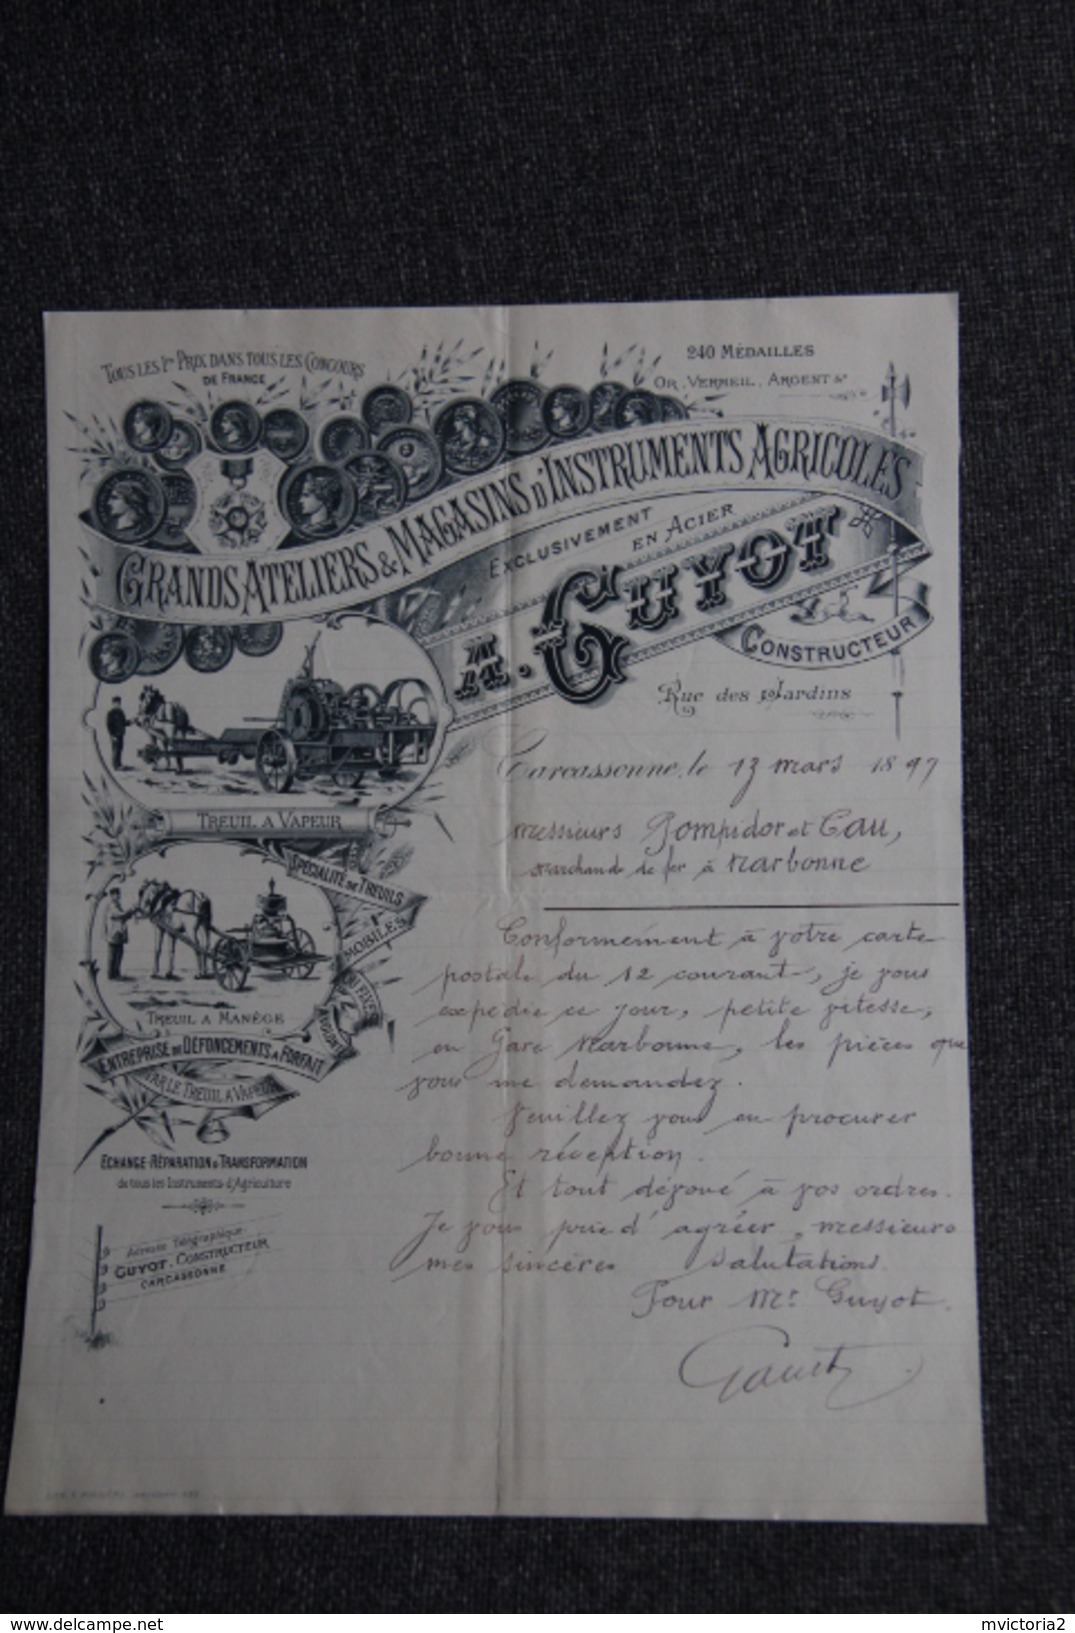 Tous les 1ers Prix dans tous les Concours
de France
240 Médailles
Or, Vermeil, Argent &a
Grands Ateliers & Magasins d'Instruments Agricoles
Exclusivement
en Acier
A. Guyot
Constructeur
Rue des Jardins
Treuil a Vapeur
Spécialité de Treuils
Mobiles
ou Fixes
Treuil a Manège
Entreprise de Défoncements a Forfait
par le Treuil a Vapeur
Echange-Réparation & Transformation
de tous les Instruments d'Agriculture
Adresse Télégraphique
Guyot. Constructeur
Carcassonne
Carcassonne, le 13 mars 1897
Messieurs Pompidor et Cau,
Marchands de fer à Narbonne
Conformément à votre carte
postale du 12 courant, je vous
expédie ce jour, petite vitesse,
en Gare Narbonne, les pièces que
vous me demandez.
Veuillez vous en procurer
bonne réception.
Et tout dévoué à vos ordres.
Je vous prie d'agréer, messieurs
mes sincères salutations.
Pour Mr Guyot.
delcampe.net
mvictoria2